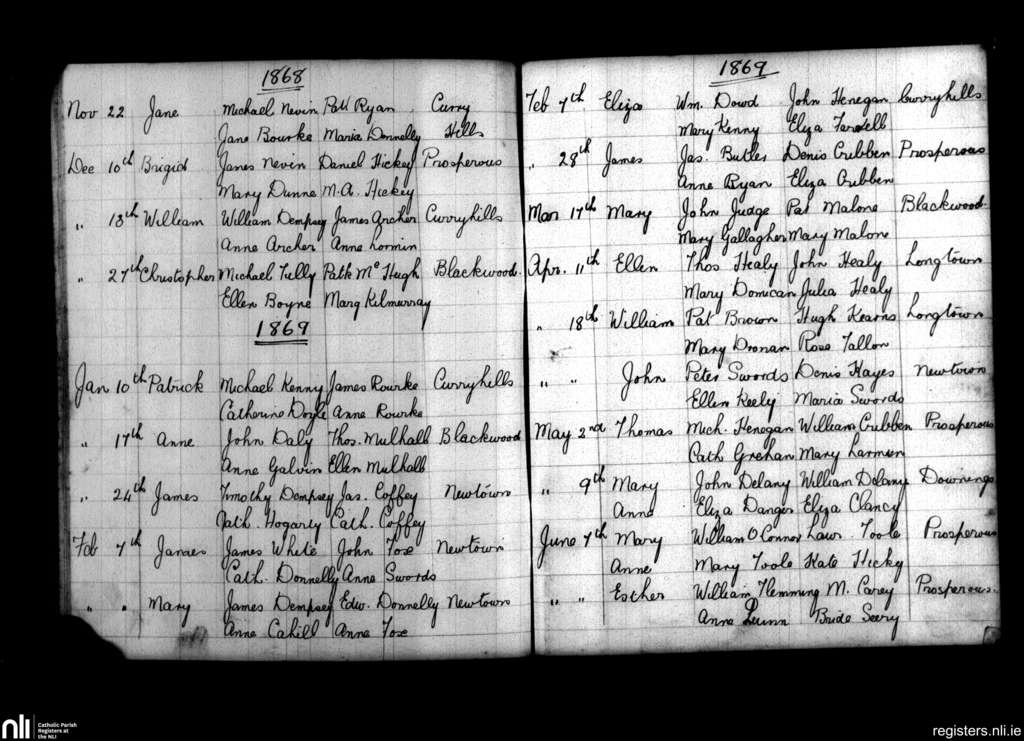 1868
Nov 22 Jane Michael Nevin Patk Ryan Curry
Jane Bourke Maria Donnelly Hills
Dec 10th Brigid James Nevin Daniel Hickey Prosperous
Mary Dunne M.A. Hickey
" 13th William William Dempsey James Archer Curryhills
Anne Archer Anne Lormin
" 27th Christopher Michael Tully Patk McHugh Blackwood
Ellen Boyne Mary Kilmurray
1869
Jan 10th Patrick Michael Kenny James Rourke Curryhills
Catherine Doyle Anne Rourke
" 17th Anne John Daly Thos. Mulhall Blackwood
Anne Galvin Ellen Mulhall
" 24th James Timothy Dempsey Jas. Coffey Newtown
Cath. Hogarty Cath. Coffey
Feb 7th James James White John Foxe Newtown
Cath. Donnelly Anne Swords
" " Mary James Dempsey Edw. Donnelly Newtown
Anne Cahill Anne Foxe
1869
Feb 7th Eliza Wm. Dowd John Henegan Curryhills
Mary Kenny Eliza Farrell
" 28th James Jas. Butler Denis Cribben Prosperous
Anne Ryan Eliza Cribben
Mar 17th Mary John Judge Pat Malone Blackwood
Mary Gallagher Mary Malone
Apr. 11th Ellen Thos Healy John Healy Longtown
Mary Donican Julia Healy
" 18th William Pat Brown Hugh Kearns Longtown
Mary Dronan Rose Fallon
" " John Peter Swords Denis Hayes Newtown
Ellen Keely Maria Swords
May 2nd Thomas Mich. Henegan William Cribben Prosperous
Cath Grehan Mary Larmin
" 9th Mary John Delany William Delany Downings
Anne Eliza Danger Eliza Clancy
June 7th Mary William O'Connor Laur. Toole Prosperous
Anne Mary Toole Kate Hicky
" " Esther William Flemming M. Carey Prosperous.
Anne Quinn Bride Seery
nli Catholic Parish
Registers at
the NLI
registers.nli.ie